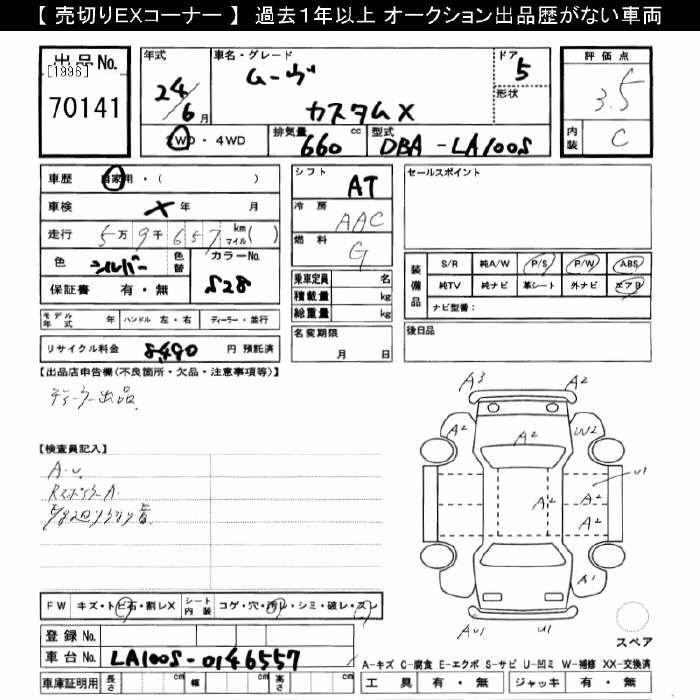 【 売切りEXコーナー 】 過去１年以上 オークション出品歴がない車両
出品No. [1996] 70141
年式 24/6月
車名・グレード ムーヴ カスタムX
ドア 5
形状
2WD・4WD
排気量 660 cc
型式 DBA-LA100S
評価点 3.5
内装 C
車歴 自家用・( )
車検 × 年 月
走行 5万9千657 km マイル( )
色 シルバー 色替
カラーNo. S28
保証書 有・無
モデル年式 年 ハンドル 左・右 ディーラー・並行
リサイクル料金 8,490 円 預託済
シフト AT
冷房 AAC
燃料 G
乗車定員 名
積載量 kg
総重量 kg
名変期限 月 日
セールスポイント
装備品
S/R 純A/W P/S P/W ABS
純TV 純ナビ 革シート 外ナビ エアB
ナビ型番：
後日品
【出品店申告欄(不良箇所・欠品・注意事項等)】
ディーラー出品
【検査員記入】
A・U
RスポイラーA
A3 A2
A2 W2
A2
U1
A2 A2
A2
A1
AU1 U1
スペア
FW キズ・トビ石・割レX シート内装 コゲ・穴・汚レ・シミ・破レ・スレ
登録No.
車台No. LA100S-0146557
車庫証明用 長さ cm 幅 cm 高さ cm
A-キズ C-腐食 E-エクボ S-サビ U-凹ミ W-補修 XX-交換済
工具 有・無 ジャッキ 有・無